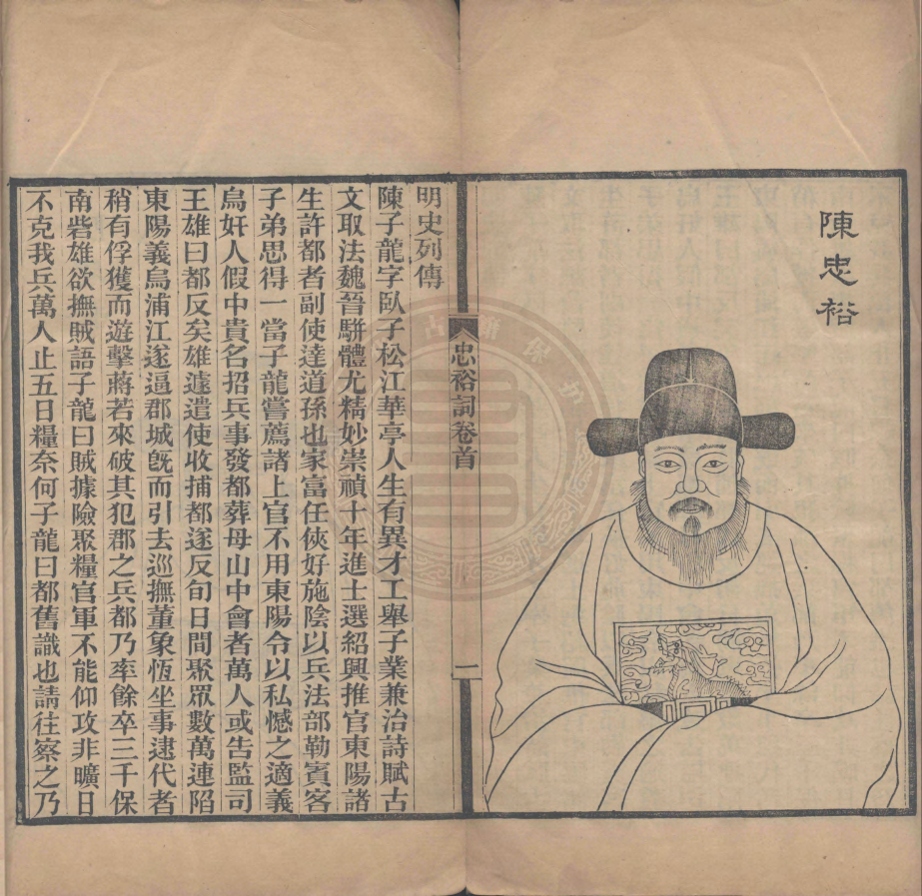 陳忠裕
忠裕詞卷首
一
明史列傳
陳子龍字臥子松江華亭人生有異才工舉子業兼治詩賦古
文取法魏晉駢體尤精妙崇禎十年進士選紹興推官東陽諸
生許都者副使達道孫也家富任俠好施陰以兵法部勒賓客
子弟思得一當子龍嘗薦諸上官不用東陽令以私憾之適義
烏奸人假中貴名招兵事發都葬母山中會者萬人或告監司
王雄曰都反矣雄遽遣使收捕都遂反旬日間聚眾數萬連陷
東陽義烏浦江遂逼郡城旣而引去巡撫董象恆坐事逮代者
稍有俘獲而遊擊蔣若來破其犯郡之兵都乃率餘卒三千保
南砦雄欲撫賊語子龍曰賊據險聚糧官軍不能仰攻非曠日
不克我兵萬人止五日糧奈何子龍曰都舊識也請往察之乃